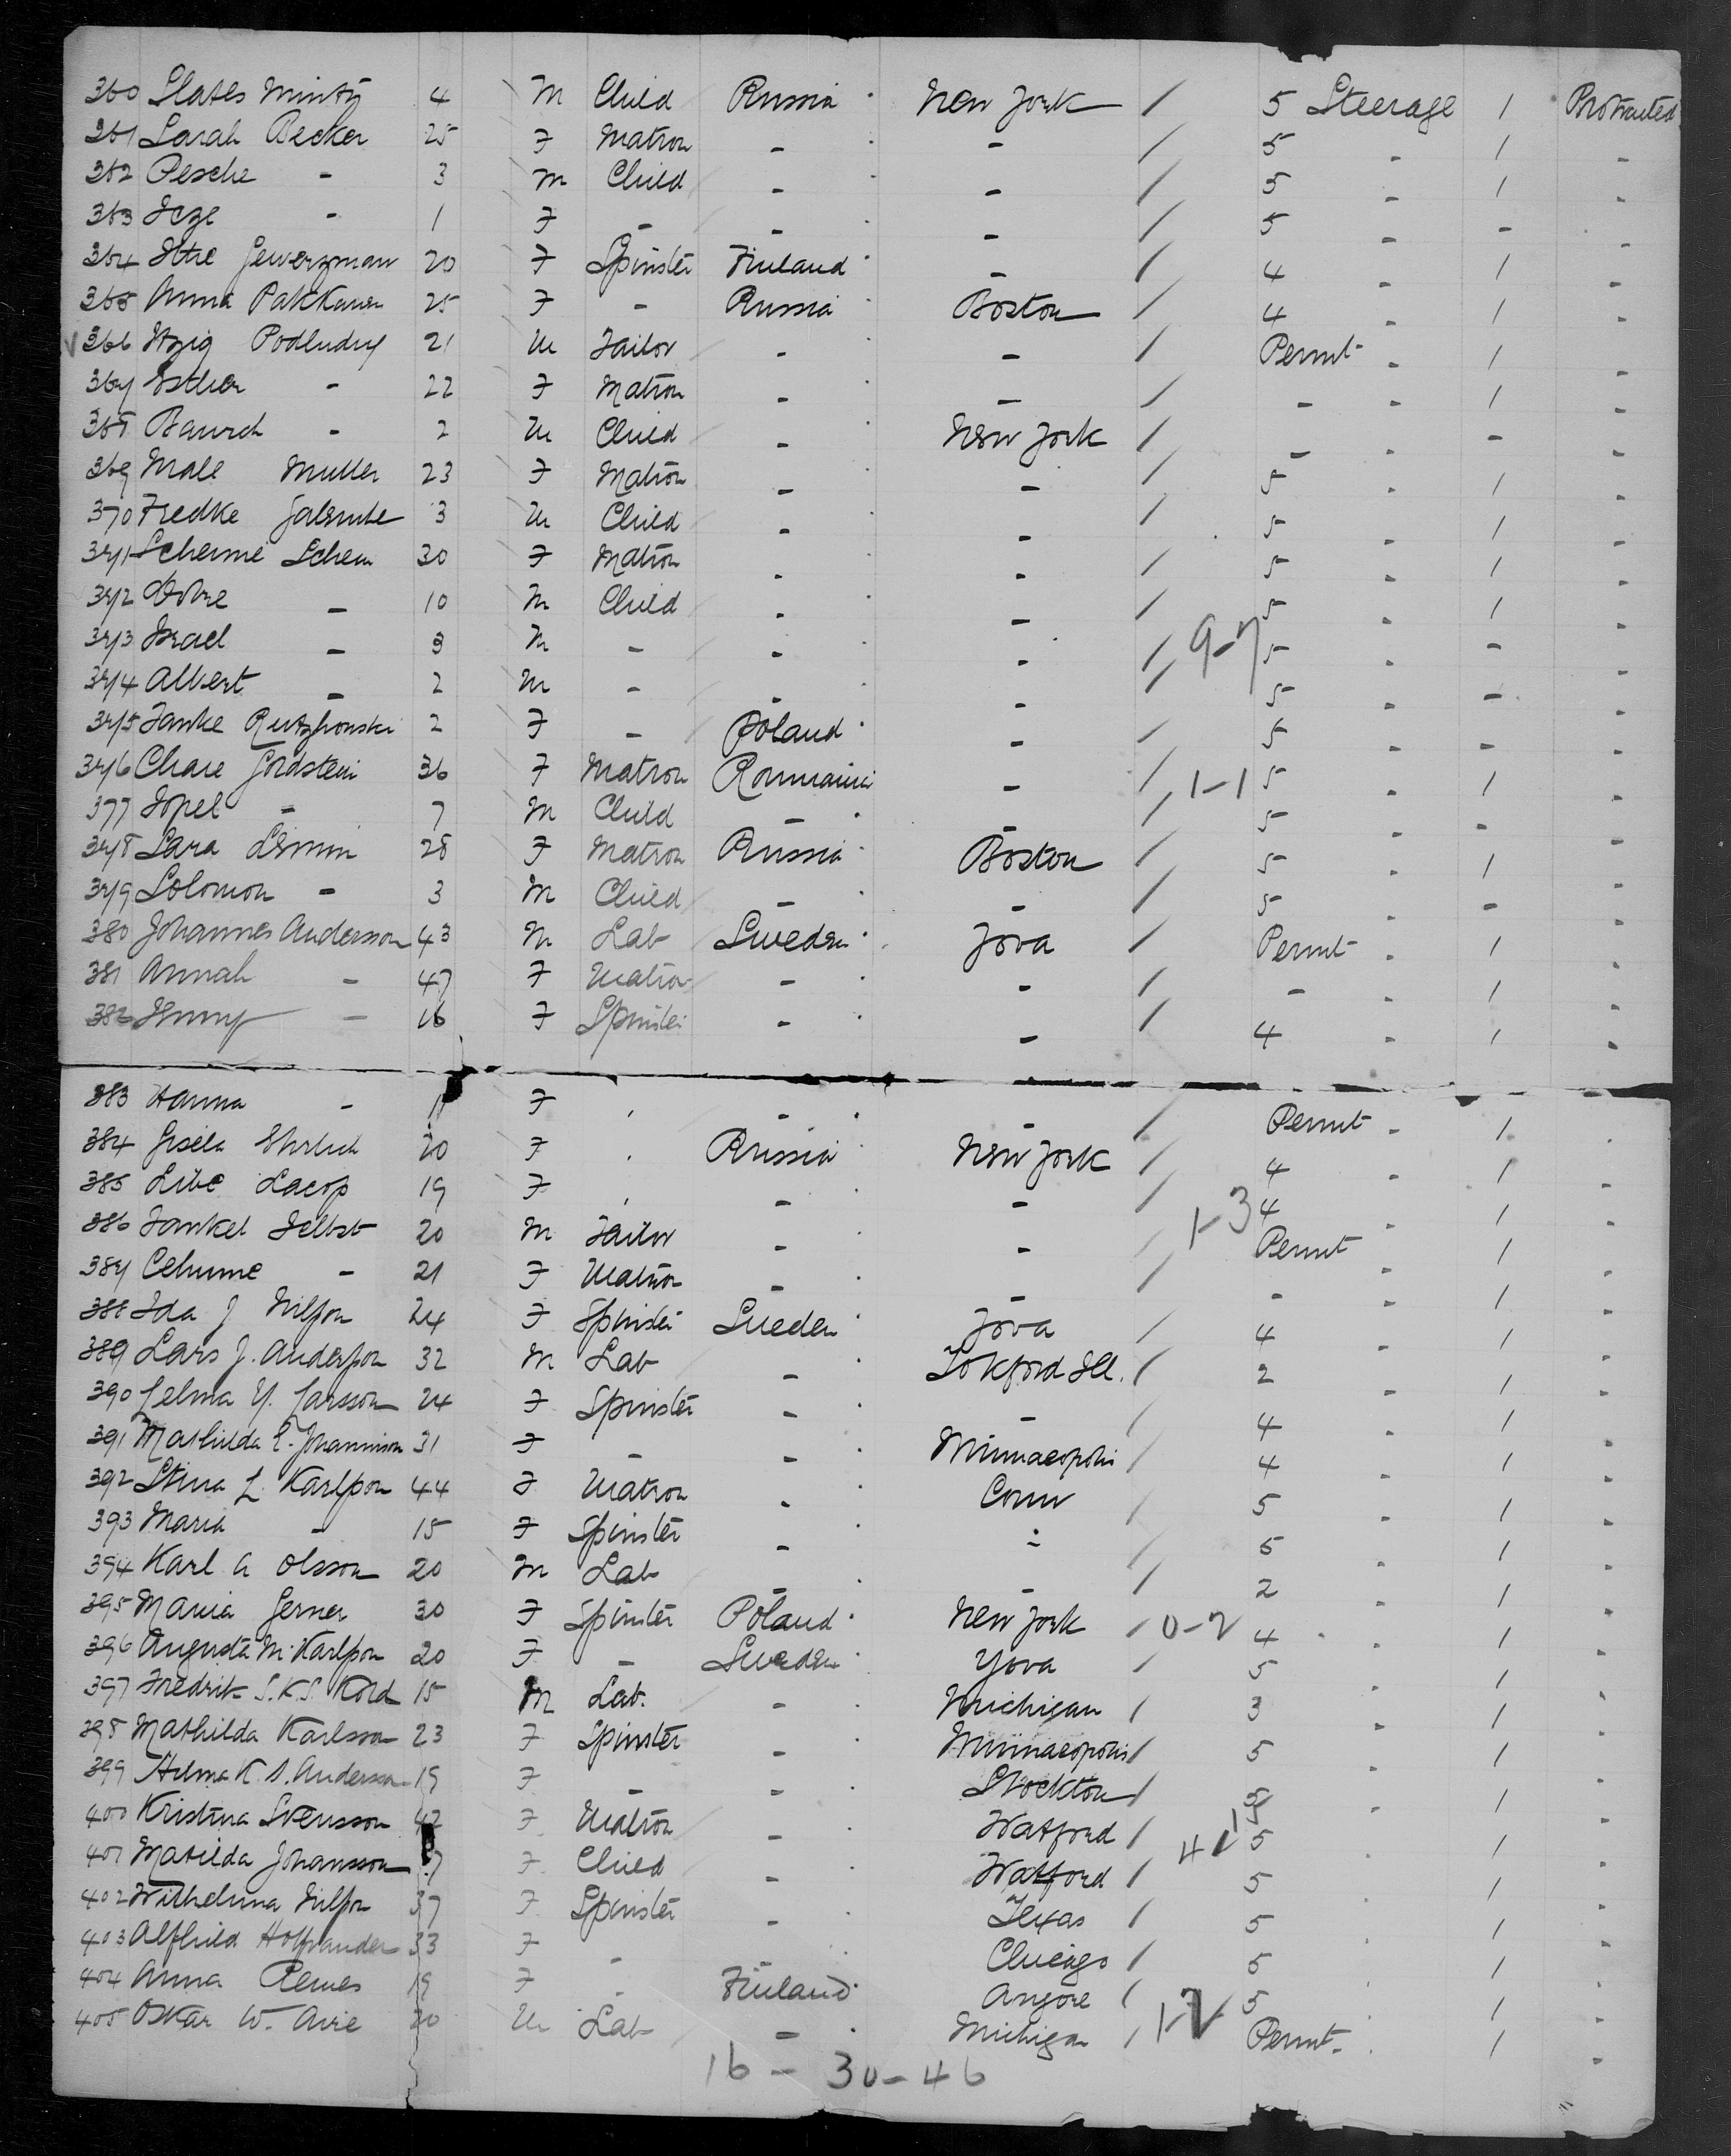 360 Slates Minty 4 M Child Russia New York / 5 Steerage 1 Protracted
361 Sarah Becker 25 F Matron - - / 5 - 1 -
362 Pesche - 3 M Child - - / 5 - 1 -
363 - 1 F - - - / 5 - - -
364 Gewerzman 20 F Spinster Finland - / 4 - 1 -
365 Anna Pakkanen 25 F - Russia Boston / 4 - 1 -
366 Itzig Podludny 21 M Tailor - - / Permt - 1 -
367 Esther - 22 F Matron - - / - - 1 -
368 Baruch - 2 M Child - New York / - - - -
369 Male Muller 23 F Matron - - / 5 - 1 -
370 Fredke 3 M Child - - / 5 - 1 -
371 Scherme Schein 30 F Matron - - / 5 - 1 -
372 Dobre - 10 M Child - - / 5 - 1 -
373 Israel - 8 M - - - / 9-7 5 - - -
374 Albert - 2 M - - - / 5 - - -
375 Janke 2 F - Poland - / 5 - - -
376 Chare Goldstein 36 F Matron Roumania - / 1-1 5 - 1 -
377 - 7 M Child - - / 5 - - -
378 Sara 28 F Matron Russia Boston / 5 - 1 -
379 Solomon - 3 M Child - - / 5 - - -
380 Johannes Andersson 43 M Lab Sweden Jova / Permt - 1 -
381 Annah - 47 F Matron - - / - - 1 -
382 Jenny - 16 F Spinster - - / 4 - 1 -
383 Hanna - 11 F - - / Permt - 1 -
384 Gisela Ehrlich 20 F Russia New York / 4 - 1 -
385 Libe Lacop 19 F - - / 4 - 1 -
386 Jankel Selbst 20 M Tailor - - / 1-3 Permt - 1 -
387 Cehume - 21 F Matron - - / - - 1 -
388 Ida J Nilson 24 F Spinster Sweden Jova / 4 - 1 -
389 Lars J. Anderson 32 M Lab - Ill. / 2 - 1 -
390 Selma Y. Larsson 24 F Spinster - - / 4 - 1 -
391 Mathilda E. Johannison 31 F - - Minneapolis / 4 - 1 -
392 Stina L. Karlson 44 F Matron - Conn / 5 - 1 -
393 Maria - 15 F Spinster - - / 5 - 1 -
394 Karl A Olsson 20 M Lab - - / 2 - 1 -
395 Maria Gerner 30 F Spinster Poland New York / 0-2 4 - 1 -
396 Augusta M. Karlson 20 F - Sweden Yova / 5 - 1 -
397 Fredrik S.K.S. Kold 15 M Lab. - Michigan / 3 - 1 -
398 Mathilda Karlsson 23 F Spinster - Minneapolis / 5 - 1 -
399 Hilma K. S. Anderson 19 F - - Stockton / 5 - 1 -
400 Kristina Svensson 42 F Matron - Watford / 5 - 1 -
401 Matilda Johansson 7 F Child - Watford / 5 - 1 -
402 Wilhelmina Nilson 37 F Spinster - Texas / 5 - 1 -
403 Alfhild 33 F - - Chicago / 5 - 1 -
404 Anna Remes 19 F - Finland Angore / 5 - 1 -
405 Oskar W. Aire 20 M Lab - Michigan / Permt. - 1 -
16 - 30 - 46